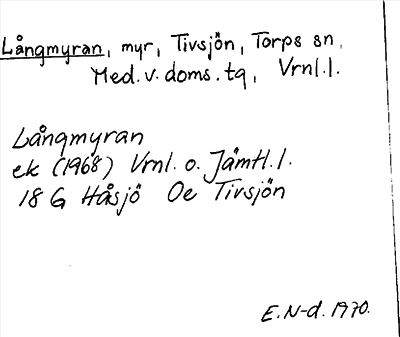 Långmyran, myr, Tivsjön, Torps sn,
Med. v. doms. tg, Vrnl. l.
Långmyran
ek (1968) Vrnl. o. Jämtl. l.
18 G Håsjö Oe Tivsjön
E. N-d. 1970.